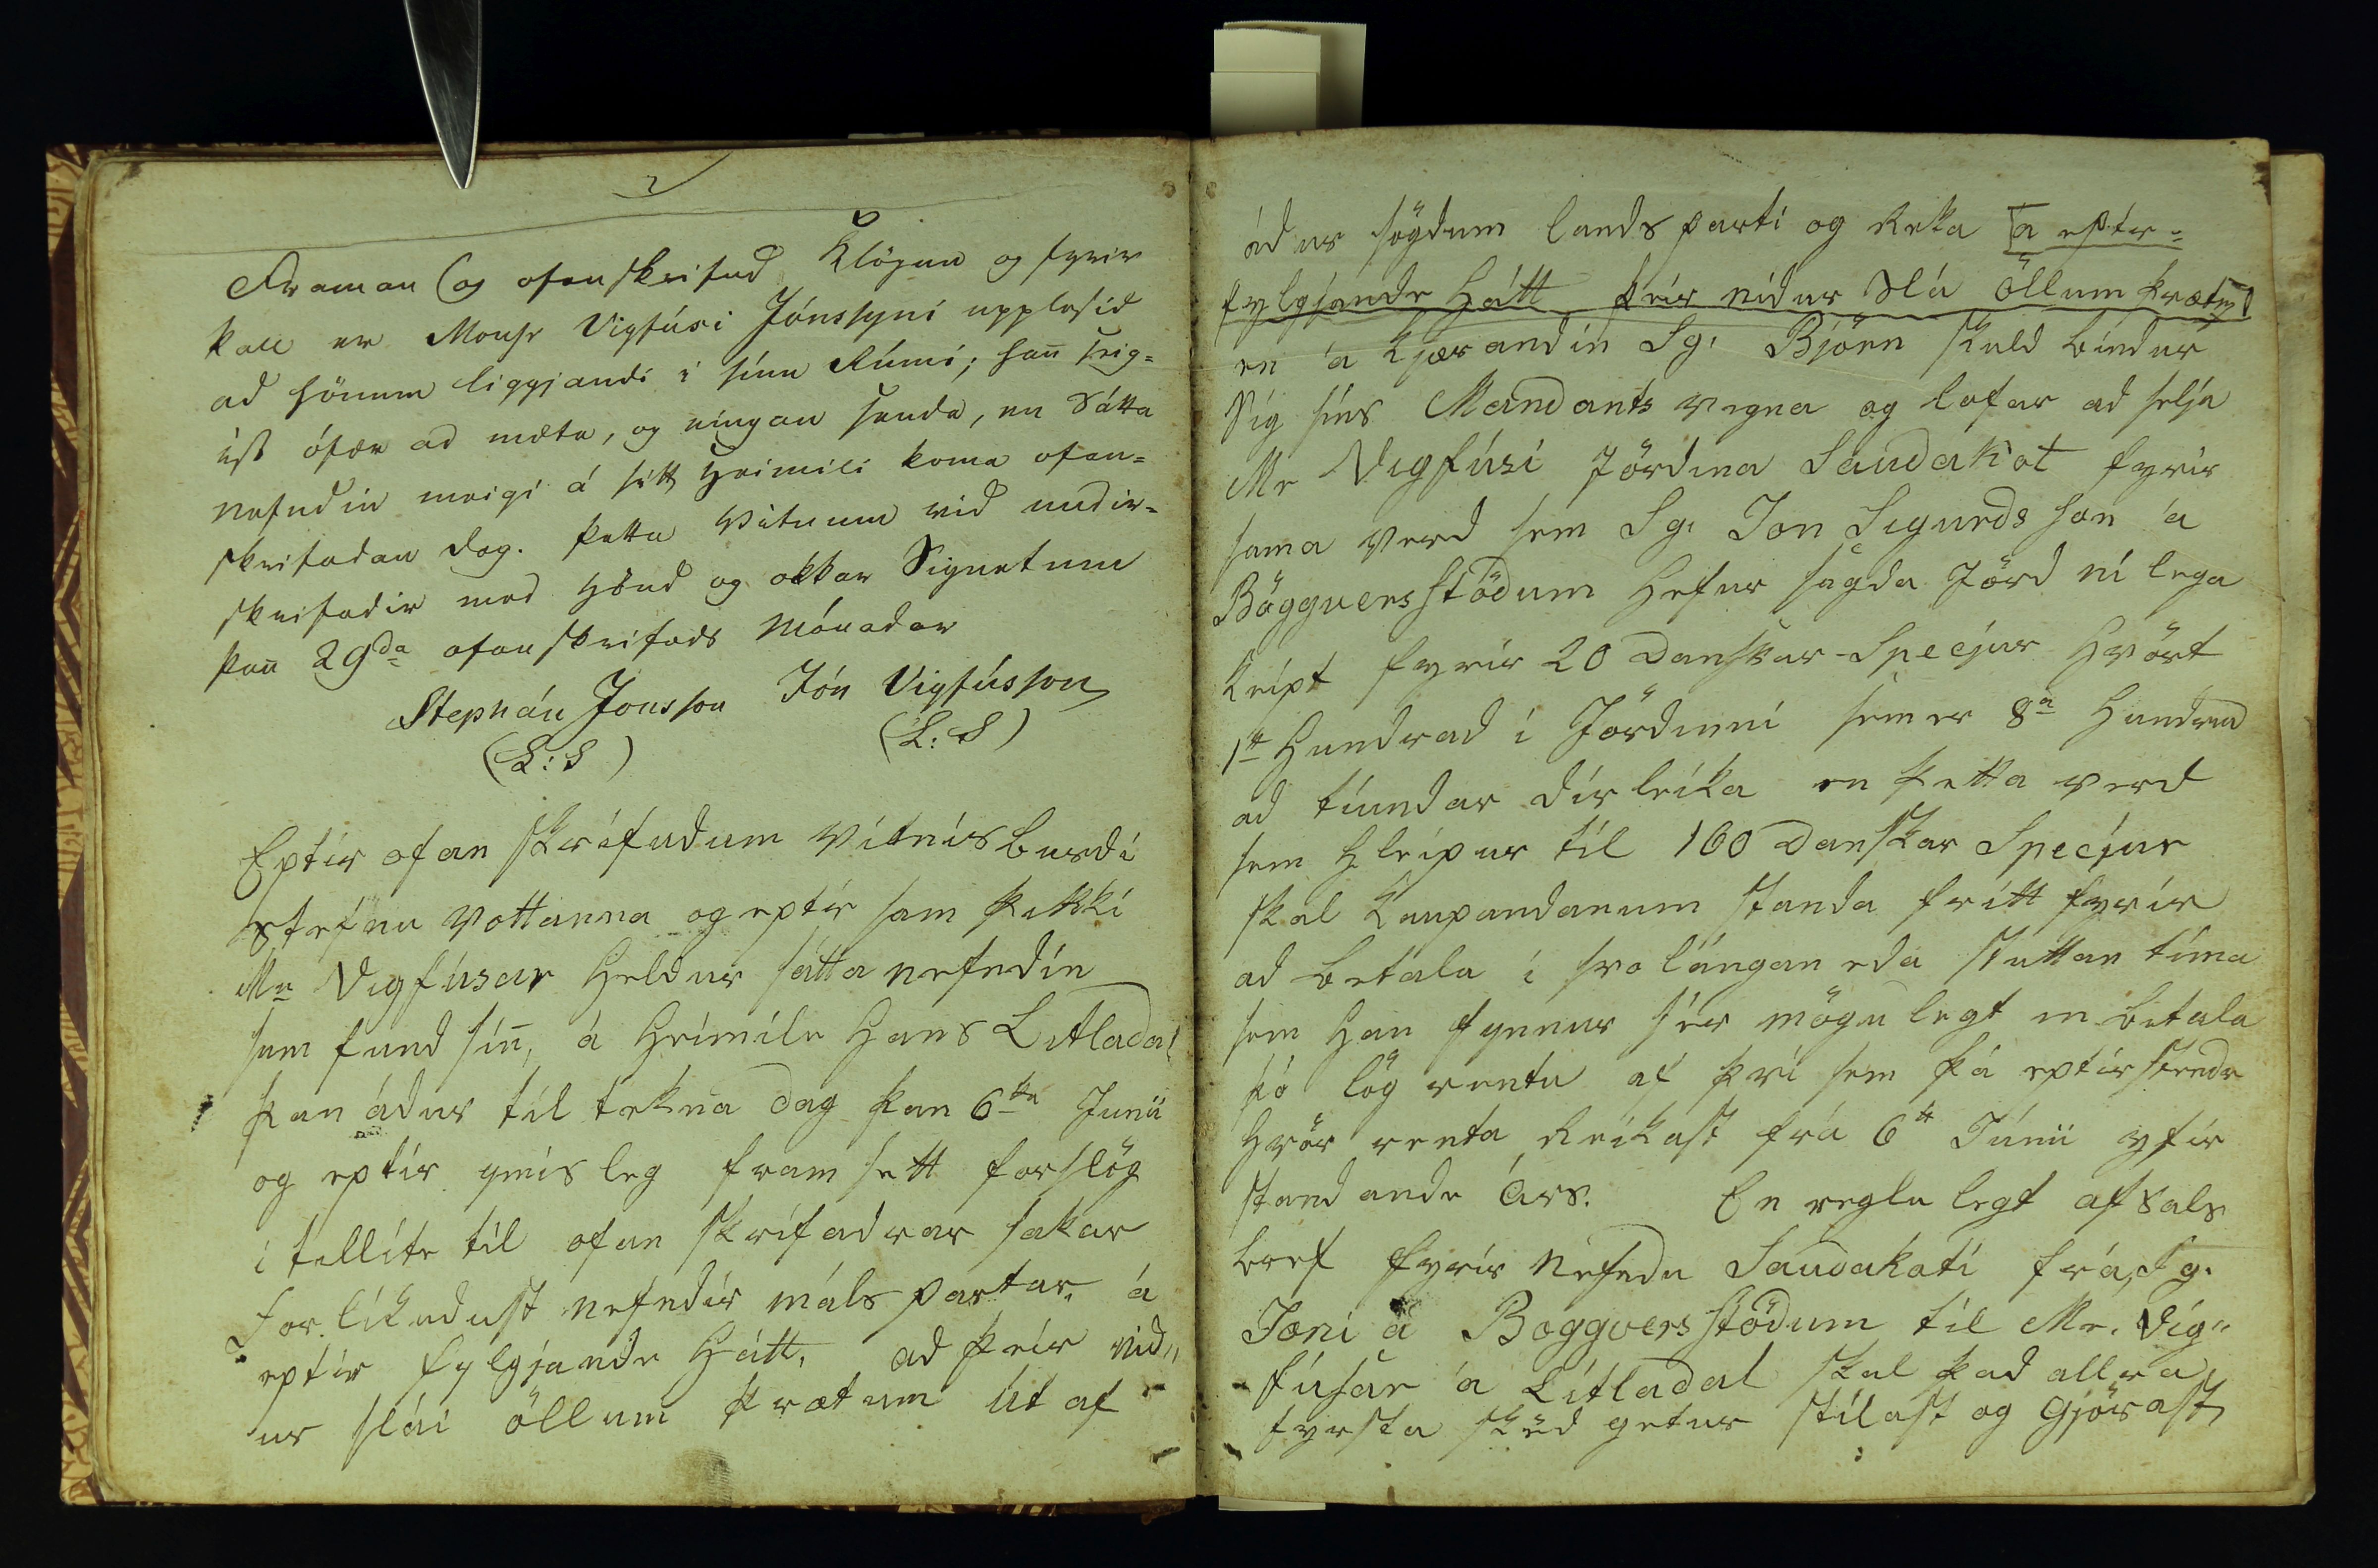 Framan og ofanskrifud Klögun og fyrir
kall er Monsr Vigfúsi Jónssyni upplesid
ad hönum liggjandi i sínu Rúmi; han seig=
ist ófær ad mæta, og eingan senda, en Sátta
nefndin meigi á sitt Heimili koma ofan=
skrifadan dag. Þetta Vitnum vid undir=
skrifadir med Hönd og okkar Signetum
þan 29da ofanskrifads Mánadar
Stephán Jonsson Jón Vigfússon
(L:S) (L:S)
Eptir ofan skrifudum vitnis burdi
stefnu vottanna og eptir sam þikki
Mr Vigfúsar heldur sátta nefndin
sam fund sin, á Heimile Hans Litladal
þan ádur til tekna dag þan 6ta Junii
og eptir ymisleg fram sett forslög
i tillite til ofan skrifadrar sakar
forlikudust nefndir máls partar á
eptir fylgjande Hátt, ad þeir nid„
ur slái öllum þrætum út af
ádur sögdum lands parti og Reka a eptir=
fylgjande Hátt þeir nidur Slá öllum þrætum
en á Kjærandin Sg. Björn skuld bindur
Sig sins Mandants vegna og lofar ad selja
Mr Vigfúsi Jördina Saudakot fyrir
sama verd sem Sg. Jon Sigurdsson á
Böggversstödum Hefur sagda Jörd ni lega
Keipt fyrir 20 Danskar Specjur Hvört
1t Hundrad i Jördinni sem er 8a Hundrud
ad tiundar dirleika en þetta verd
sem Hleipur til 160 Danskar Specjur
skal Kaupandanum standa fritt fyrir
ad betala i svo lángan eda stuttan tima
sem Han fynnur sér mögulegt en betala
þó lög rentu af þvi sem þá eptirstendr
Hvör renta Reikast frá 6t Júnii yfir
standande Árs. En reglulegt afsals
bref fyrir Nefndu Saudakoti frá Sg.
Joni á Boggversstödum til Mr. Vig„
fúsar á Litladal skal þad allra
fyrsta sked getur stilast og Gjörast